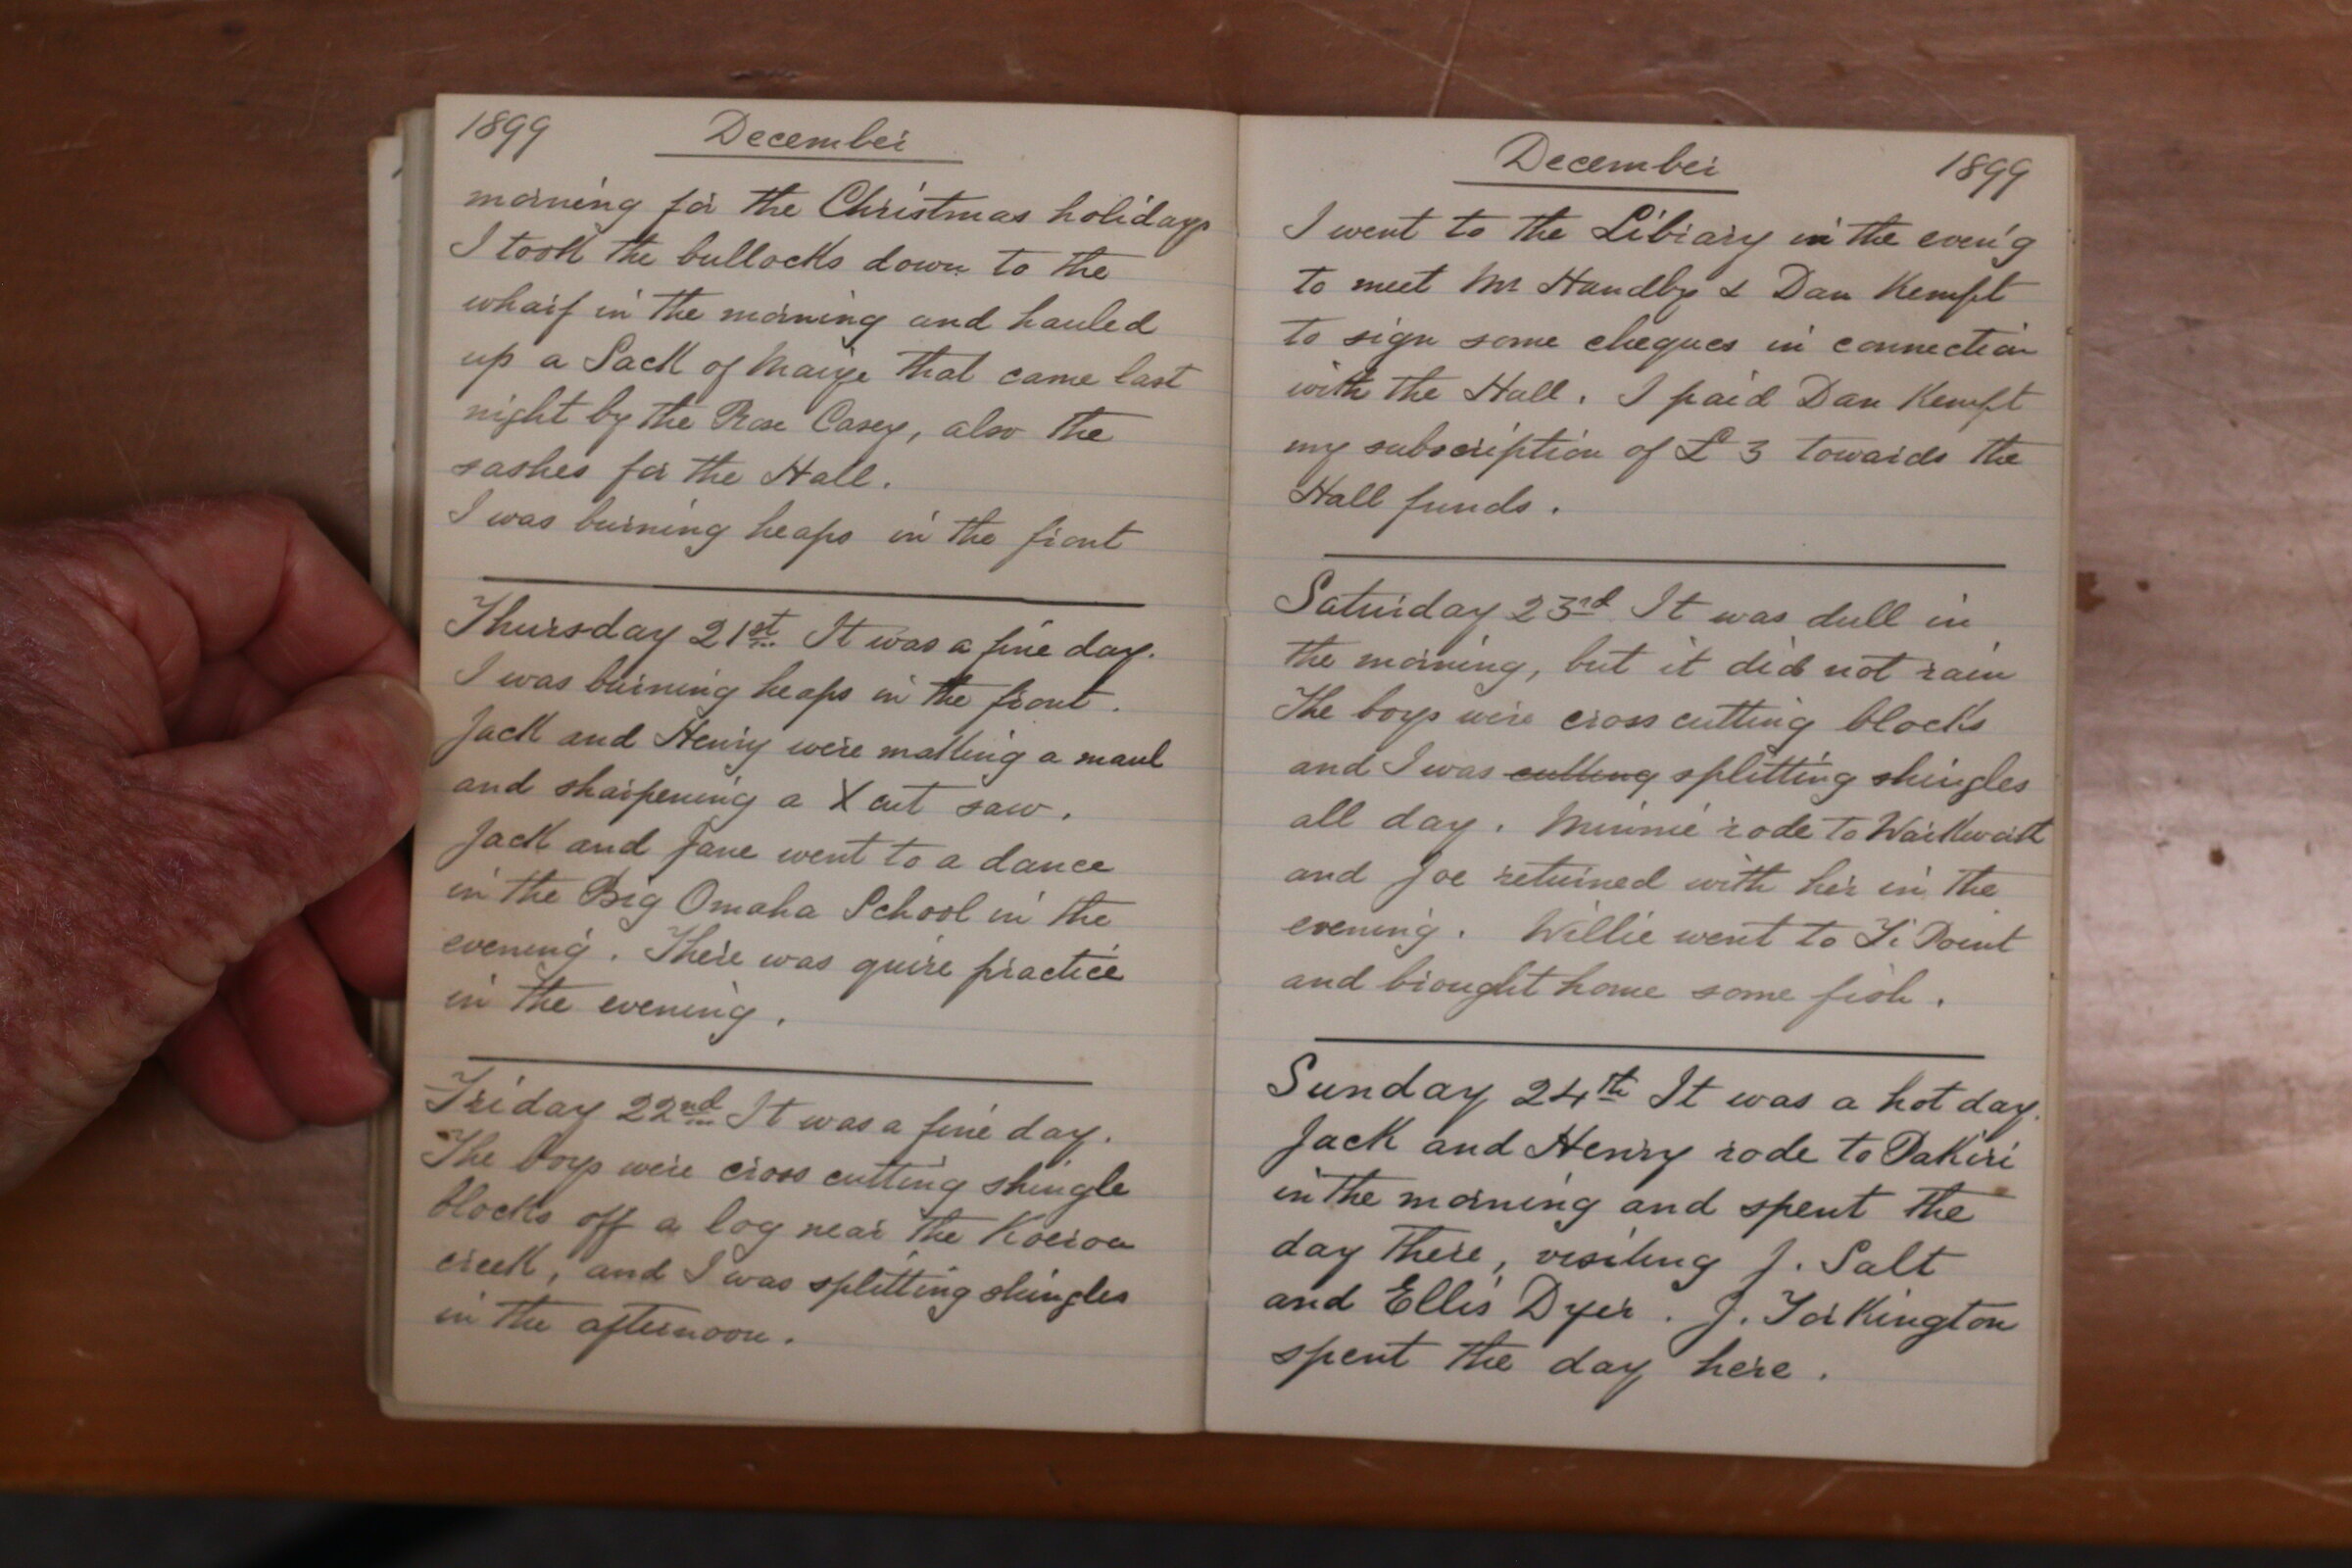 1899 December
morning for the Christmas holidays
I took the bullocks down to the
wharf in the morning and hauled
up a Sack of Maize that came last
night by the Rose Casey, also the
sashes for the Hall.
I was burning heaps in the front
Thursday 21st It was a fine day.
I was burning heaps in the front.
Jack and Henry were making a maul
and sharpening a X cut saw.
Jack and Jane went to a dance
in the Big Omaha School in the
evening. There was quire practice
in the evening.
Friday 22nd It was a fine day.
The boys were cross cutting shingle
blocks off a log near the Koeroa
creek, and I was splitting shingles
in the afternoon.
December 1899
I went to the Library in the even'g
to meet Mr Handby & Dan Kempt
to sign some cheques in connection
with the Hall. I paid Dan Kempt
my subscription of £3 towards the
Hall funds.
Saturday 23rd It was dull in
the morning, but it did not rain
The boys were cross cutting blocks
and I was cutting splitting shingles
all day. Minnie rode to Warkworth
and Joe returned with her in the
evening. Willie went to Ti Point
and brought home some fish.
Sunday 24th It was a hot day.
Jack and Henry rode to Pakiri
in the morning and spent the
day there, visiting J. Salt
and Ellis Dyer. J. Torkington
spent the day here.